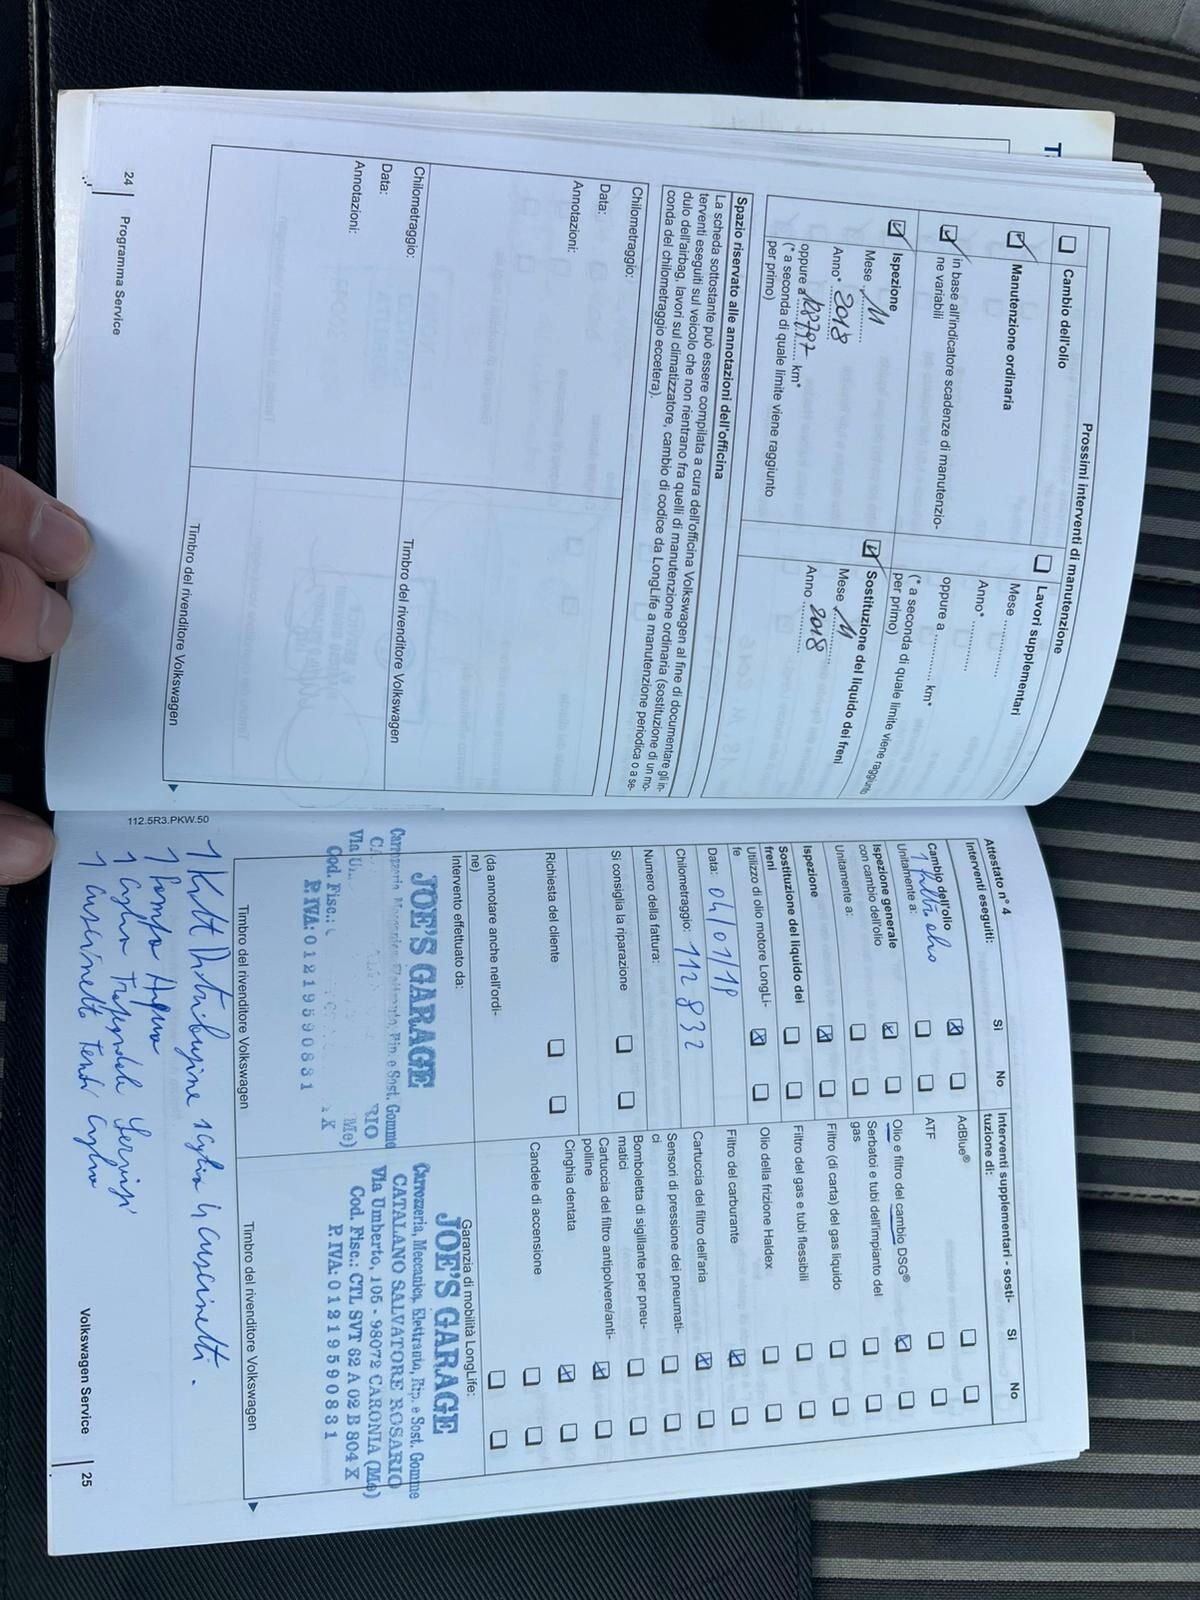 Prossimi interventi di manutenzione
Cambio dell'olio
Manutenzione ordinaria
in base all'indicatore scadenze di manutenzio-
ne variabili
Ispezione
Mese 11
Anno* 2018
oppure a km*
(* a seconda di quale limite viene raggiunto
per primo)
Lavori supplementari
Mese ............
Anno* ............
oppure a ............ km*
(* a seconda di quale limite viene raggiunto
per primo)
Sostituzione del liquido dei freni
Mese 11
Anno 2018
Spazio riservato alle annotazioni dell'officina
La scheda sottostante può essere compilata a cura dell'officina Volkswagen al fine di documentare gli in-
terventi eseguiti sul veicolo che non rientrano fra quelli di manutenzione ordinaria (sostituzione di un mo-
dulo dell'airbag, lavori sul climatizzatore, cambio di codice da LongLife a manutenzione periodica o a se-
conda del chilometraggio eccetera).
Chilometraggio:
Data:
Annotazioni:
Timbro del rivenditore Volkswagen
Chilometraggio:
Data:
Annotazioni:
Timbro del rivenditore Volkswagen
24 Programma Service
Attestato n° 4
Interventi eseguiti: Sì No
Cambio dell'olio
1 filtro olio
Unitamente a:
Ispezione generale
con cambio dell'olio
Unitamente a:
Ispezione
Sostituzione del liquido dei
freni
Utilizzo di olio motore LongLi-
fe
Data: 04/01/18
Chilometraggio: 112 832
Numero della fattura:
Si consiglia la riparazione
Richiesta del cliente
(da annotare anche nell'ordi-
ne)
Intervento effettuato da:
JOE'S GARAGE
Carrozzeria, Meccanica, Elettrauto, Rip. e Sost. Gomme
RIO
Via U Me)
Cod. Fisc.: X
P. IVA: 01219590831
Timbro del rivenditore Volkswagen
Interventi supplementari - sosti-
tuzione di: Sì No
AdBlue®
ATF
Olio e filtro del cambio DSG®
Serbatoi e tubi dell'impianto del
gas
Filtro (di carta) del gas liquido
Filtro del gas e tubi flessibili
Olio della frizione Haldex
Filtro del carburante
Cartuccia del filtro dell'aria
Sensori di pressione dei pneumati-
ci
Bomboletta di sigillante per pneu-
matici
Cartuccia del filtro antipolvere/anti-
polline
Cinghia dentata
Candele di accensione
Garanzia di mobilità LongLife:
JOE'S GARAGE
Carrozzeria, Meccanica, Elettrauto, Rip. e Sost. Gomme
CATALANO SALVATORE ROSARIO
Via Umberto, 105 - 98072 CARONIA (Me)
Cod. Fisc.: CTL SVT 62 A 02 B 804 X
P. IVA: 01219590831
Timbro del rivenditore Volkswagen
112.5R3.PKW.50
1 Kitt Distribuzione 1 Cighia 4 Cuscinetti.
1 Pompa Acqua
1 Cighia Trapezoidale Servizi
1 Cuscinetto Tendi Cighia
Volkswagen Service 25